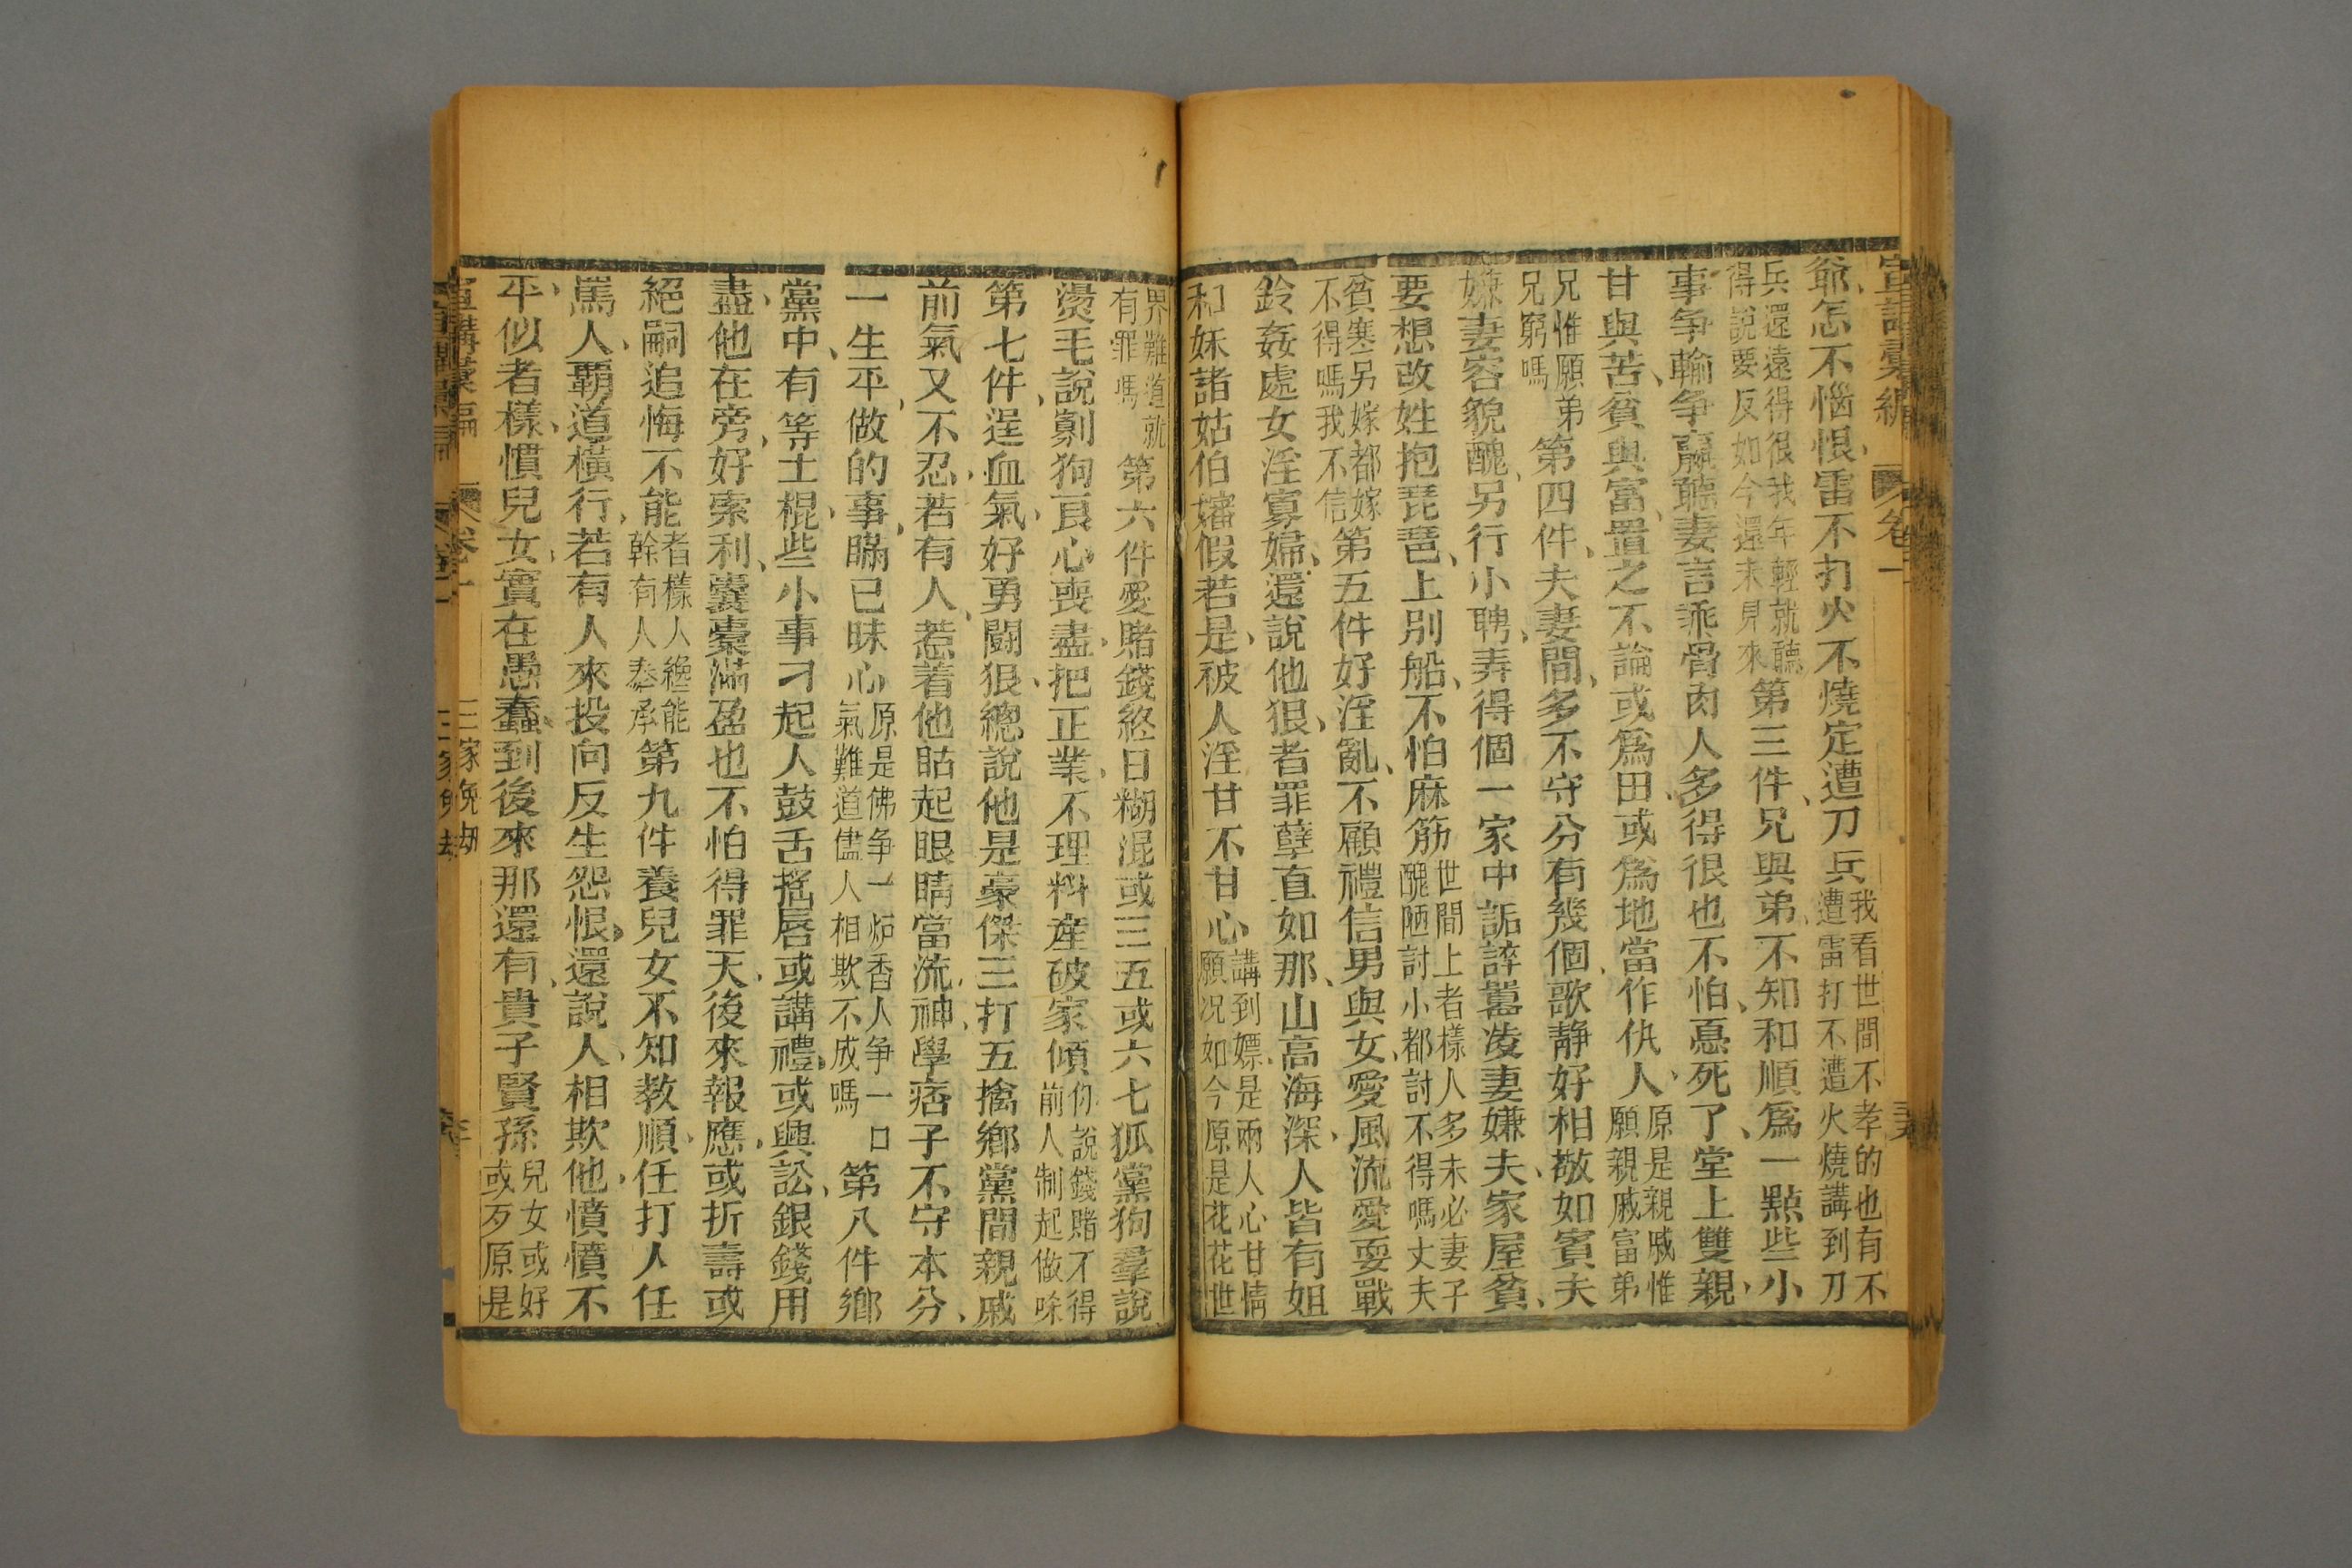 宣講彙編 卷一
爺、怎不惱恨、雷不打火不燒定遭刀兵我看世間不孝的也有不遭雷打不遭火燒講到刀
兵還遠得很我年輕就聽得說要反如今還未見來第三件、兄與弟、不知和順爲一點些小
事争輸争贏聽妻言乖骨肉人多得很也不怕、慪死了、堂上雙親、
甘與苦、貧與富、置之不論或爲田、或爲地當作仇人、原是親戚惟願親戚富弟
兄惟願弟兄窮嗎第四件、夫妻間、多不守分有幾個、歌靜好相敬如賓夫
嫌妻容貌醜、另行小聘、弄得個一家中詬誶嚣凌妻嫌夫、家屋貧、
要想改姓抱琵琶、上别船、不怕麻筋世間上者樣人多未必妻子醜陋討小都討不得嗎丈夫
貧寒另嫁都嫁不得嗎我不信第五件好淫亂、不顧禮信男與女、愛風流愛耍戰
鈴姦處女淫寡婦、還說他狠、者罪孽直如那、山高海深、人皆有姐
和妹諸姑伯嬸假若是、被人淫甘不甘心講到嫖、是兩人心甘情願况如今原是花花世
界難道就有罪嗎第六件愛賭錢終日糊混或三五或六七狐黨狗羣說
燙毛說剝狗良心喪盡、把正業、不理料産破家傾你說錢賭不得前人制起做啥
第七件、逞血氣、好勇鬪狠、總說他是豪傑三打五擒鄉黨間親戚
前氣又不忍、若有人、惹着他眙起眼睛當流神、學痞子不守本分、
一生平、做的事、瞞已昧心原是佛争一炉香人争一口氣難道儘人相欺不成嗎第八件鄉
黨中、有等土棍、些小事刁起人鼓舌摇唇或講禮、或興訟、銀錢用
盡、他在旁、好索利、囊橐滿盈也不怕得罪天、後來報應、或折壽或
絕嗣追悔不能者樣人纔能幹有人奉承第九件養兒女不知教順、任打人任
罵人、覇道橫行、若有人來投向反生怨恨、還說人、相欺他、憤憤不
平、似者樣、慣兒女、實在愚蠢、到後來那還有、貴子賢孫兒女或好或歹原是
宣講彙編 卷一 三家免劫